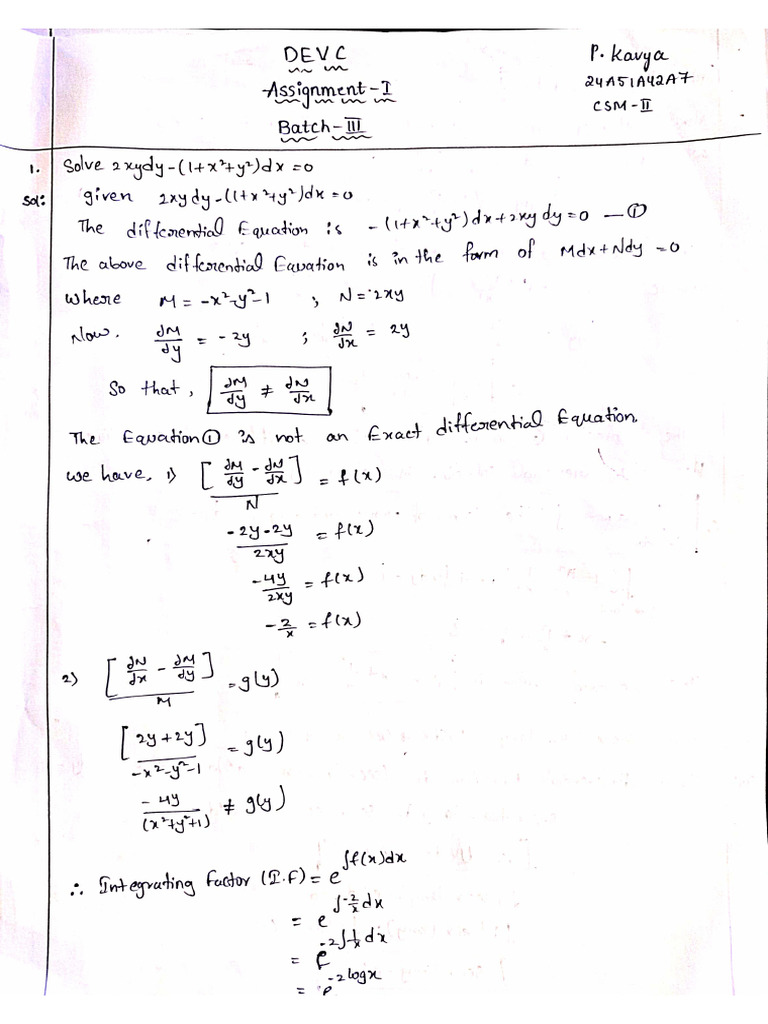 DEVC
P. Kavya
Assignment-I
24A51A42A7
CSM-II
Batch-III
1. Solve 2xydy-(1+x²+y²)dx=0
Sol: given 2xydy-(1+x²+y²)dx=0
The differential Equation is -(1+x²+y²)dx+2xy dy=0 —①
The above differential Equation is in the form of Mdx+Ndy=0
Where M=-x²-y²-1 ; N=2xy
Now. ∂M/∂y = -2y ; ∂N/∂x = 2y
So that, ∂M/∂y ≠ ∂N/∂x
The Equation① is not an Exact differential Equation.
we have, 1) [∂M/∂y - ∂N/∂x]/N = f(x)
-2y-2y/2xy = f(x)
-4y/2xy = f(x)
-2/x = f(x)
2) [∂N/∂x - ∂M/∂y]/M = g(y)
[2y+2y]/-x²-y²-1 = g(y)
-4y/(x²+y²+1) ≠ g(y)
∴ Integrating factor (I.F) = e^∫f(x)dx
= e^∫-2/x dx
= e^-2∫1/x dx
= e^-2logx